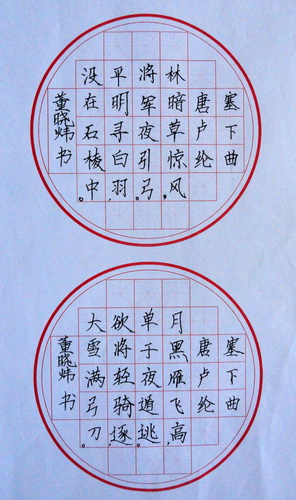 塞下曲
唐卢纶
林暗草惊风，
将军夜引弓。
平明寻白羽，
没在石棱中。
董晓炜书
塞下曲
唐卢纶
月黑雁飞高，
单于夜遁逃。
欲将轻骑逐，
大雪满弓刀。
董晓炜书